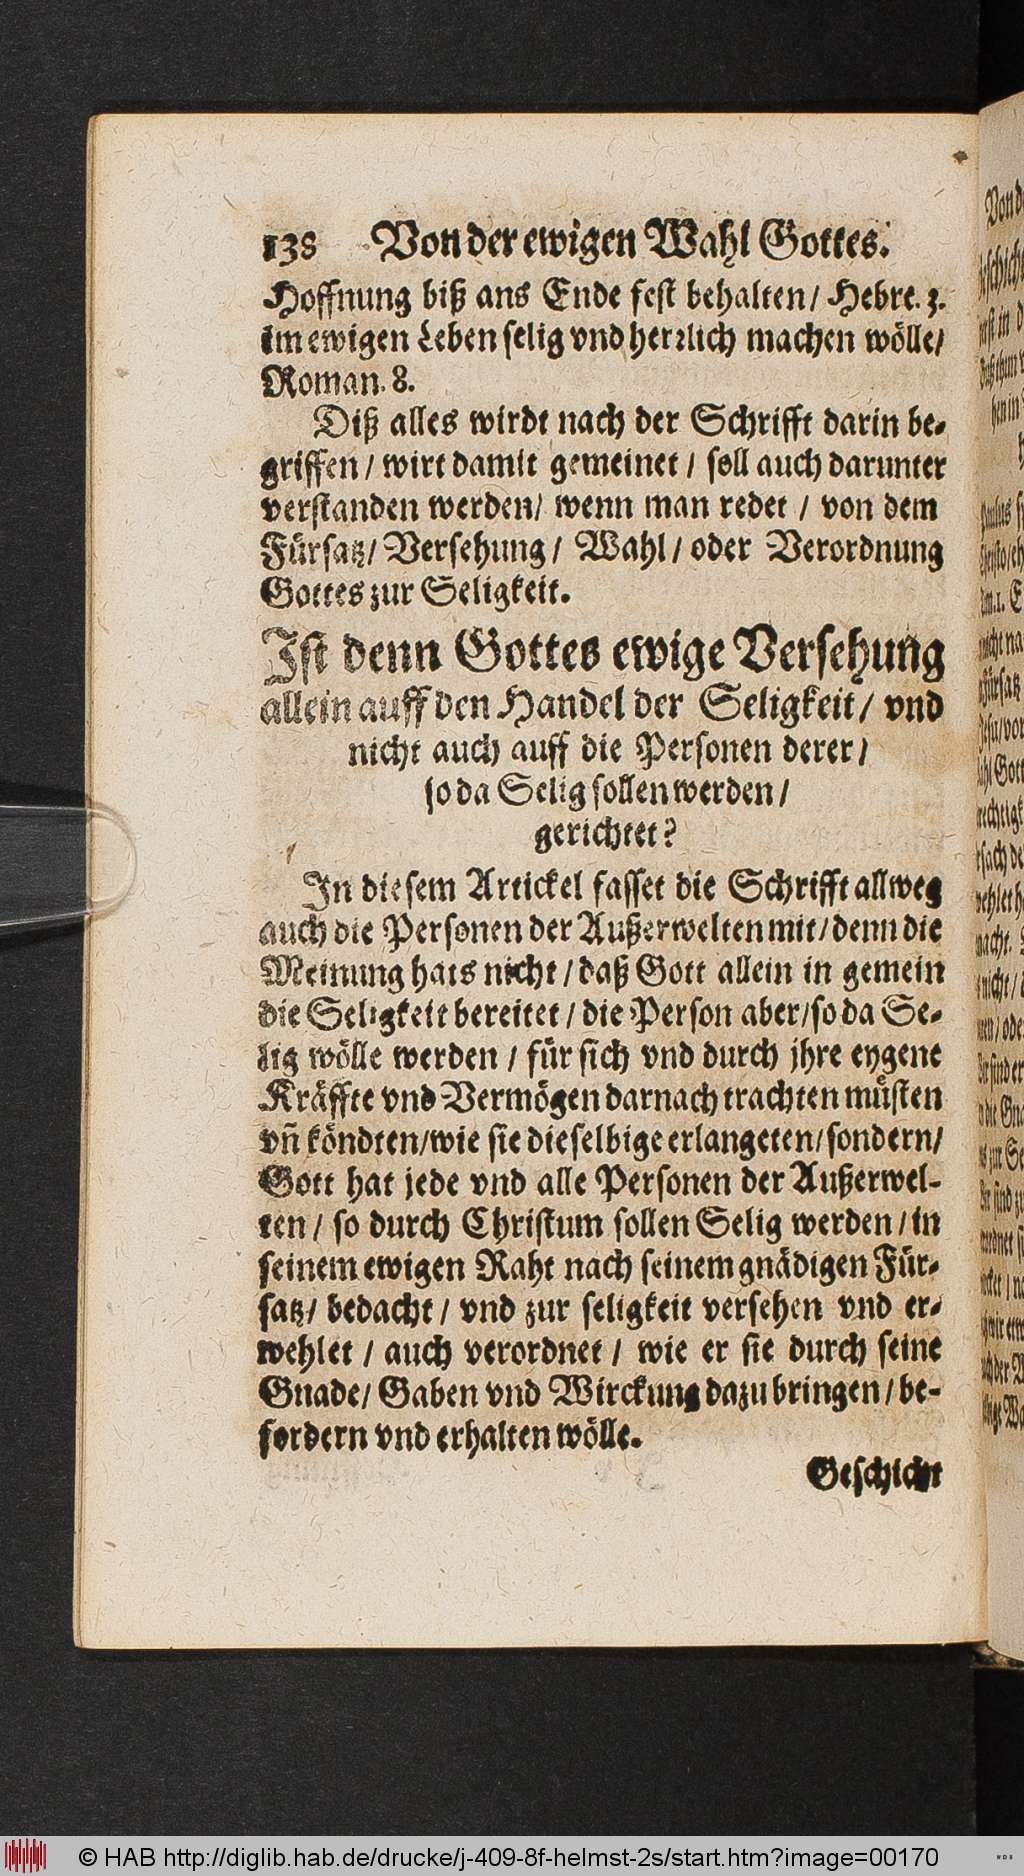 138 Von der ewigen Wahl Gottes.
Hoffnung biß ans Ende fest behalten/ Hebre. 3.
im ewigen Leben selig vnd herrlich machen wölle/
Roman. 8.
Diß alles wirdt nach der Schrifft darin be-
griffen / wirt damit gemeinet / soll auch darunter
verstanden werden/ wenn man redet / von dem
Fürsatz/ Versehung / Wahl / oder Verordnung
Gottes zur Seligkeit.
Ist denn Gottes ewige Versehung
allein auff den Handel der Seligkeit / vnd
nicht auch auff die Personen derer /
so da Selig sollen werden /
gerichtet?
In diesem Artickel fasset die Schrifft allweg
auch die Personen der Außerwelten mit / denn die
Meinung hats nicht / daß Gott allein in gemein
die Seligkeit bereitet / die Person aber / so da Se-
lig wölle werden / für sich vnd durch jhre eygene
Kräffte vnd Vermögen darnach trachten müsten
vñ köndten/wie sie dieselbige erlangeten/ sondern/
Gott hat jede vnd alle Personen der Außerwel-
ten / so durch Christum sollen Selig werden / in
seinem ewigen Raht nach seinem gnädigen Für-
satz/ bedacht / vnd zur seligkeit versehen vnd er-
wehlet / auch verordnet / wie er sie durch seine
Gnade/ Gaben vnd Wirckung dazu bringen / be-
fordern vnd erhalten wölle.
Geschicht
© HAB http://diglib.hab.de/drucke/j-409-8f-helmst-2s/start.htm?image=00170